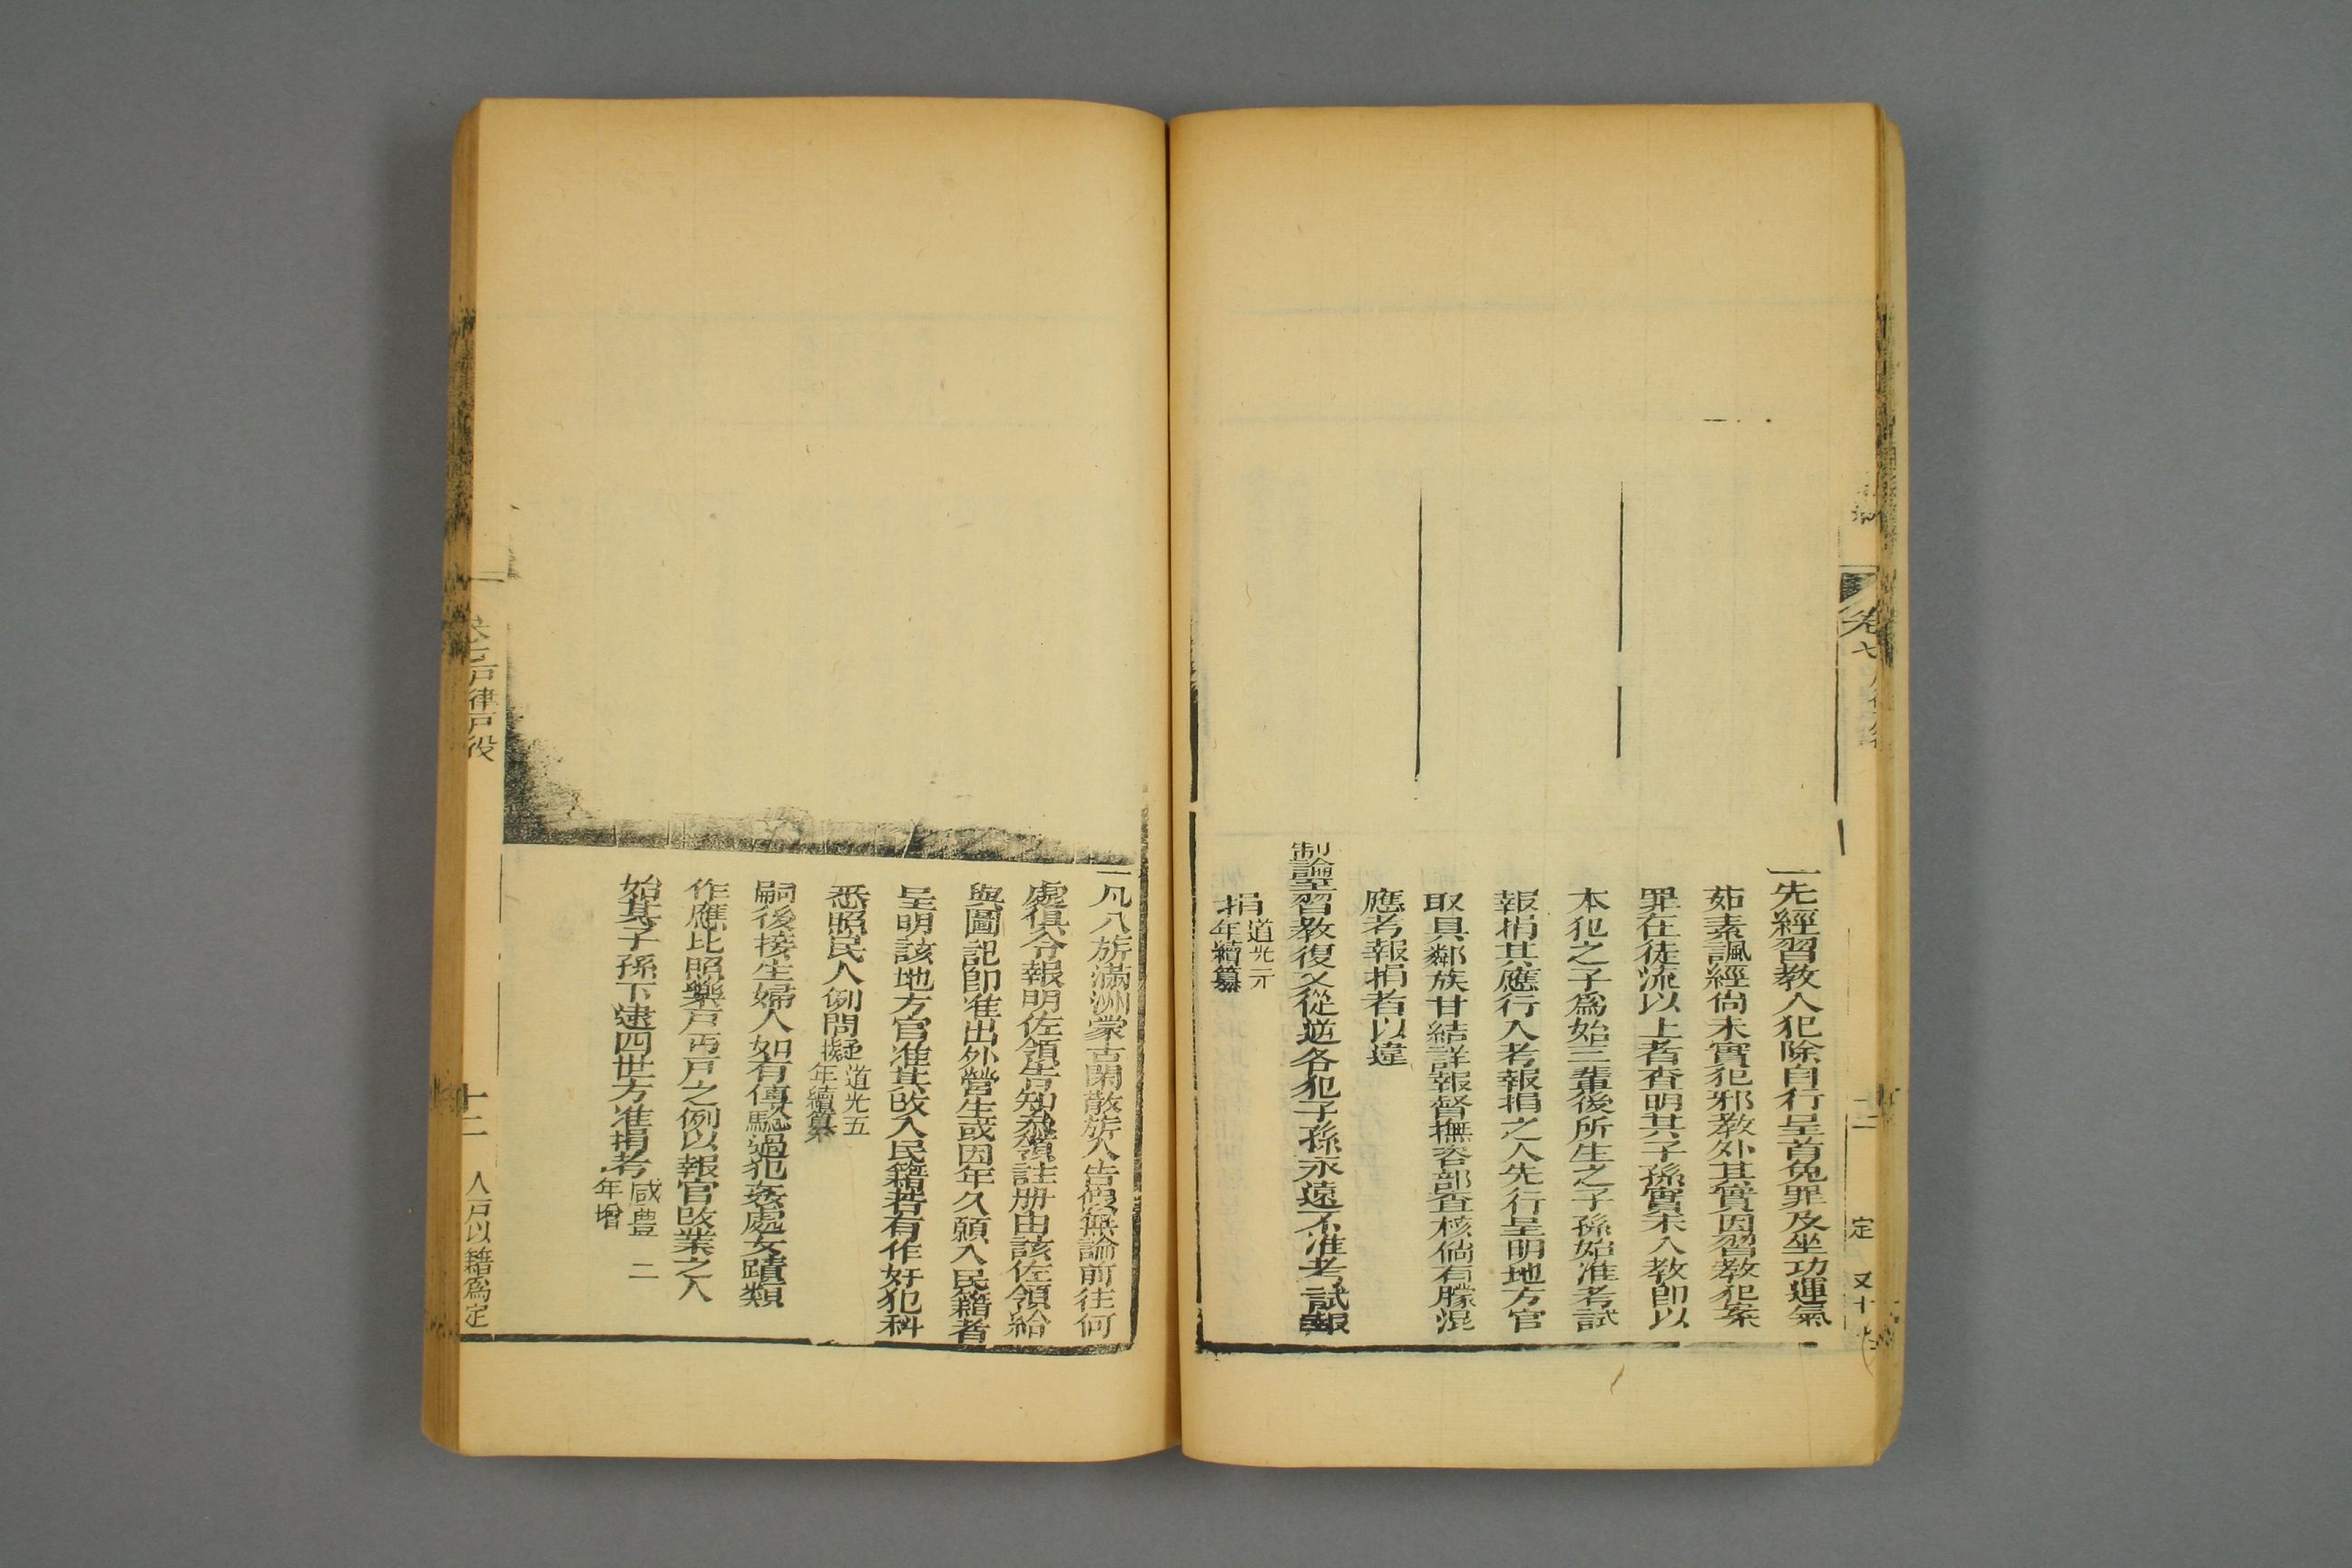 卷七
一先經習教人犯除自行呈首免罪及坐功運氣
茹素諷經尙未實犯邪教外其實因習教犯案
罪在徒流以上者查明其子孫實未入教卽以
本犯之子爲始三輩後所生之子孫始准考試
報捐其應行入考報捐之人先行呈明地方官
取具鄰族甘結詳報督撫咨部查核倘有朦混
應考報捐者以違
制論至習教復又從逆各犯子孫永遠不准考試報
捐道光元
年續纂
一凡八旂滿洲蒙古閑散旂人告假無論前往何
處俱令報明佐領告知叅領註册由該佐領給
與圖記卽准出外營生或因年久願入民籍者
呈明該地方官准其改入民籍若有作奸犯科
悉照民人例問擬道光五
年續纂
嗣後接生婦人如有傳驗過犯姦處女蹟類
作應比照樂戶丐戶之例以報官改業之人
始其子孫下逮四世方准捐考咸豐二
年增
戶律戶役
十二
人戶以籍爲定